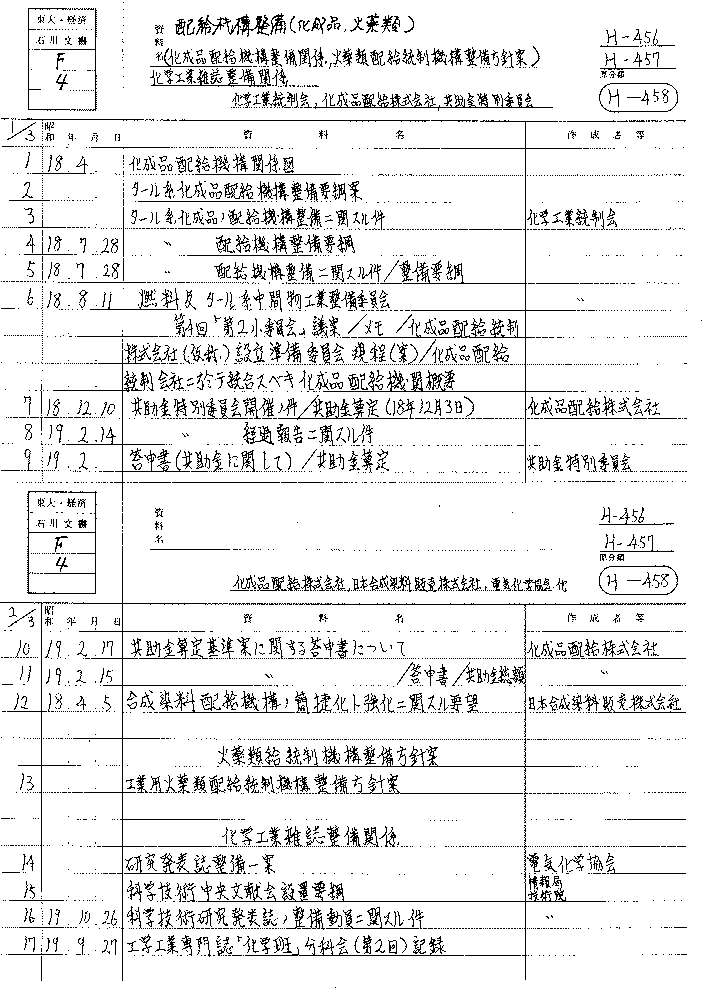 東大・経済
石川文書
F
4
資料名
配給機構整備(化成品,火薬類)
(化成品配給機構整備関係,火薬類配給統制機構整備方針案)
化学工業雑誌整備関係
化学工業統制会,化成品配給株式会社,共助金特別委員会
H-456
H-457
原分類
H-458
1/3 昭和 年 月 日 資料名 作成者等
1 18 4 化成品配給機構関係図
2 タール系化成品配給機構整備要綱案
3 タール系化成品ノ配給機構整備ニ関スル件 化学工業統制会
4 18 7 28 〃 配給機構整備要綱
5 18 7 28 〃 配給機構整備ニ関スル件/整備要綱
6 18 8 11 燃料及タール系中間物工業整備委員会 〃
第4回「第2小委員会」議案/メモ/化成品配給統制
株式会社(仮称)設立準備委員会規程(案)/化成品配給
統制会社ニ於テ統合スベキ化成品配給機関概要
7 18 12 10 共助金特別委員会開催ノ件/共助金算定(18年12月3日) 化成品配給株式会社
8 19 2 14 〃 経過報告ニ関スル件 〃
9 19 2 答申書(共助金に関して)/共助金算定 共助金特別委員会
東大・経済
石川文書
F
4
資料名
化成品配給株式会社,日本合成染料販売株式会社,電気化学協会 他
H-456
H-457
原分類
H-458
2/3 昭和 年 月 日 資料名 作成者等
10 19 2 17 共助金算定基準案に関する答申書について 化成品配給株式会社
11 19 2 15 〃 /答申書/共助金総額 〃
12 18 4 5 合成染料配給機構ノ簡捷化ト強化ニ関スル要望 日本合成染料販売株式会社
火薬類給統制機構整備方針案
13 工業用火薬類配給統制機構整備方針案
化学工業雑誌整備関係
14 研究発表誌整備一案 電気化学協会
15 科学技術中央文献会設置要綱 情報局 技術院
16 19 10 26 科学技術研究発表誌ノ整備動員ニ関スル件 〃
17 19 9 27 工学工業専門誌「化学班」分科会(第2回)記録